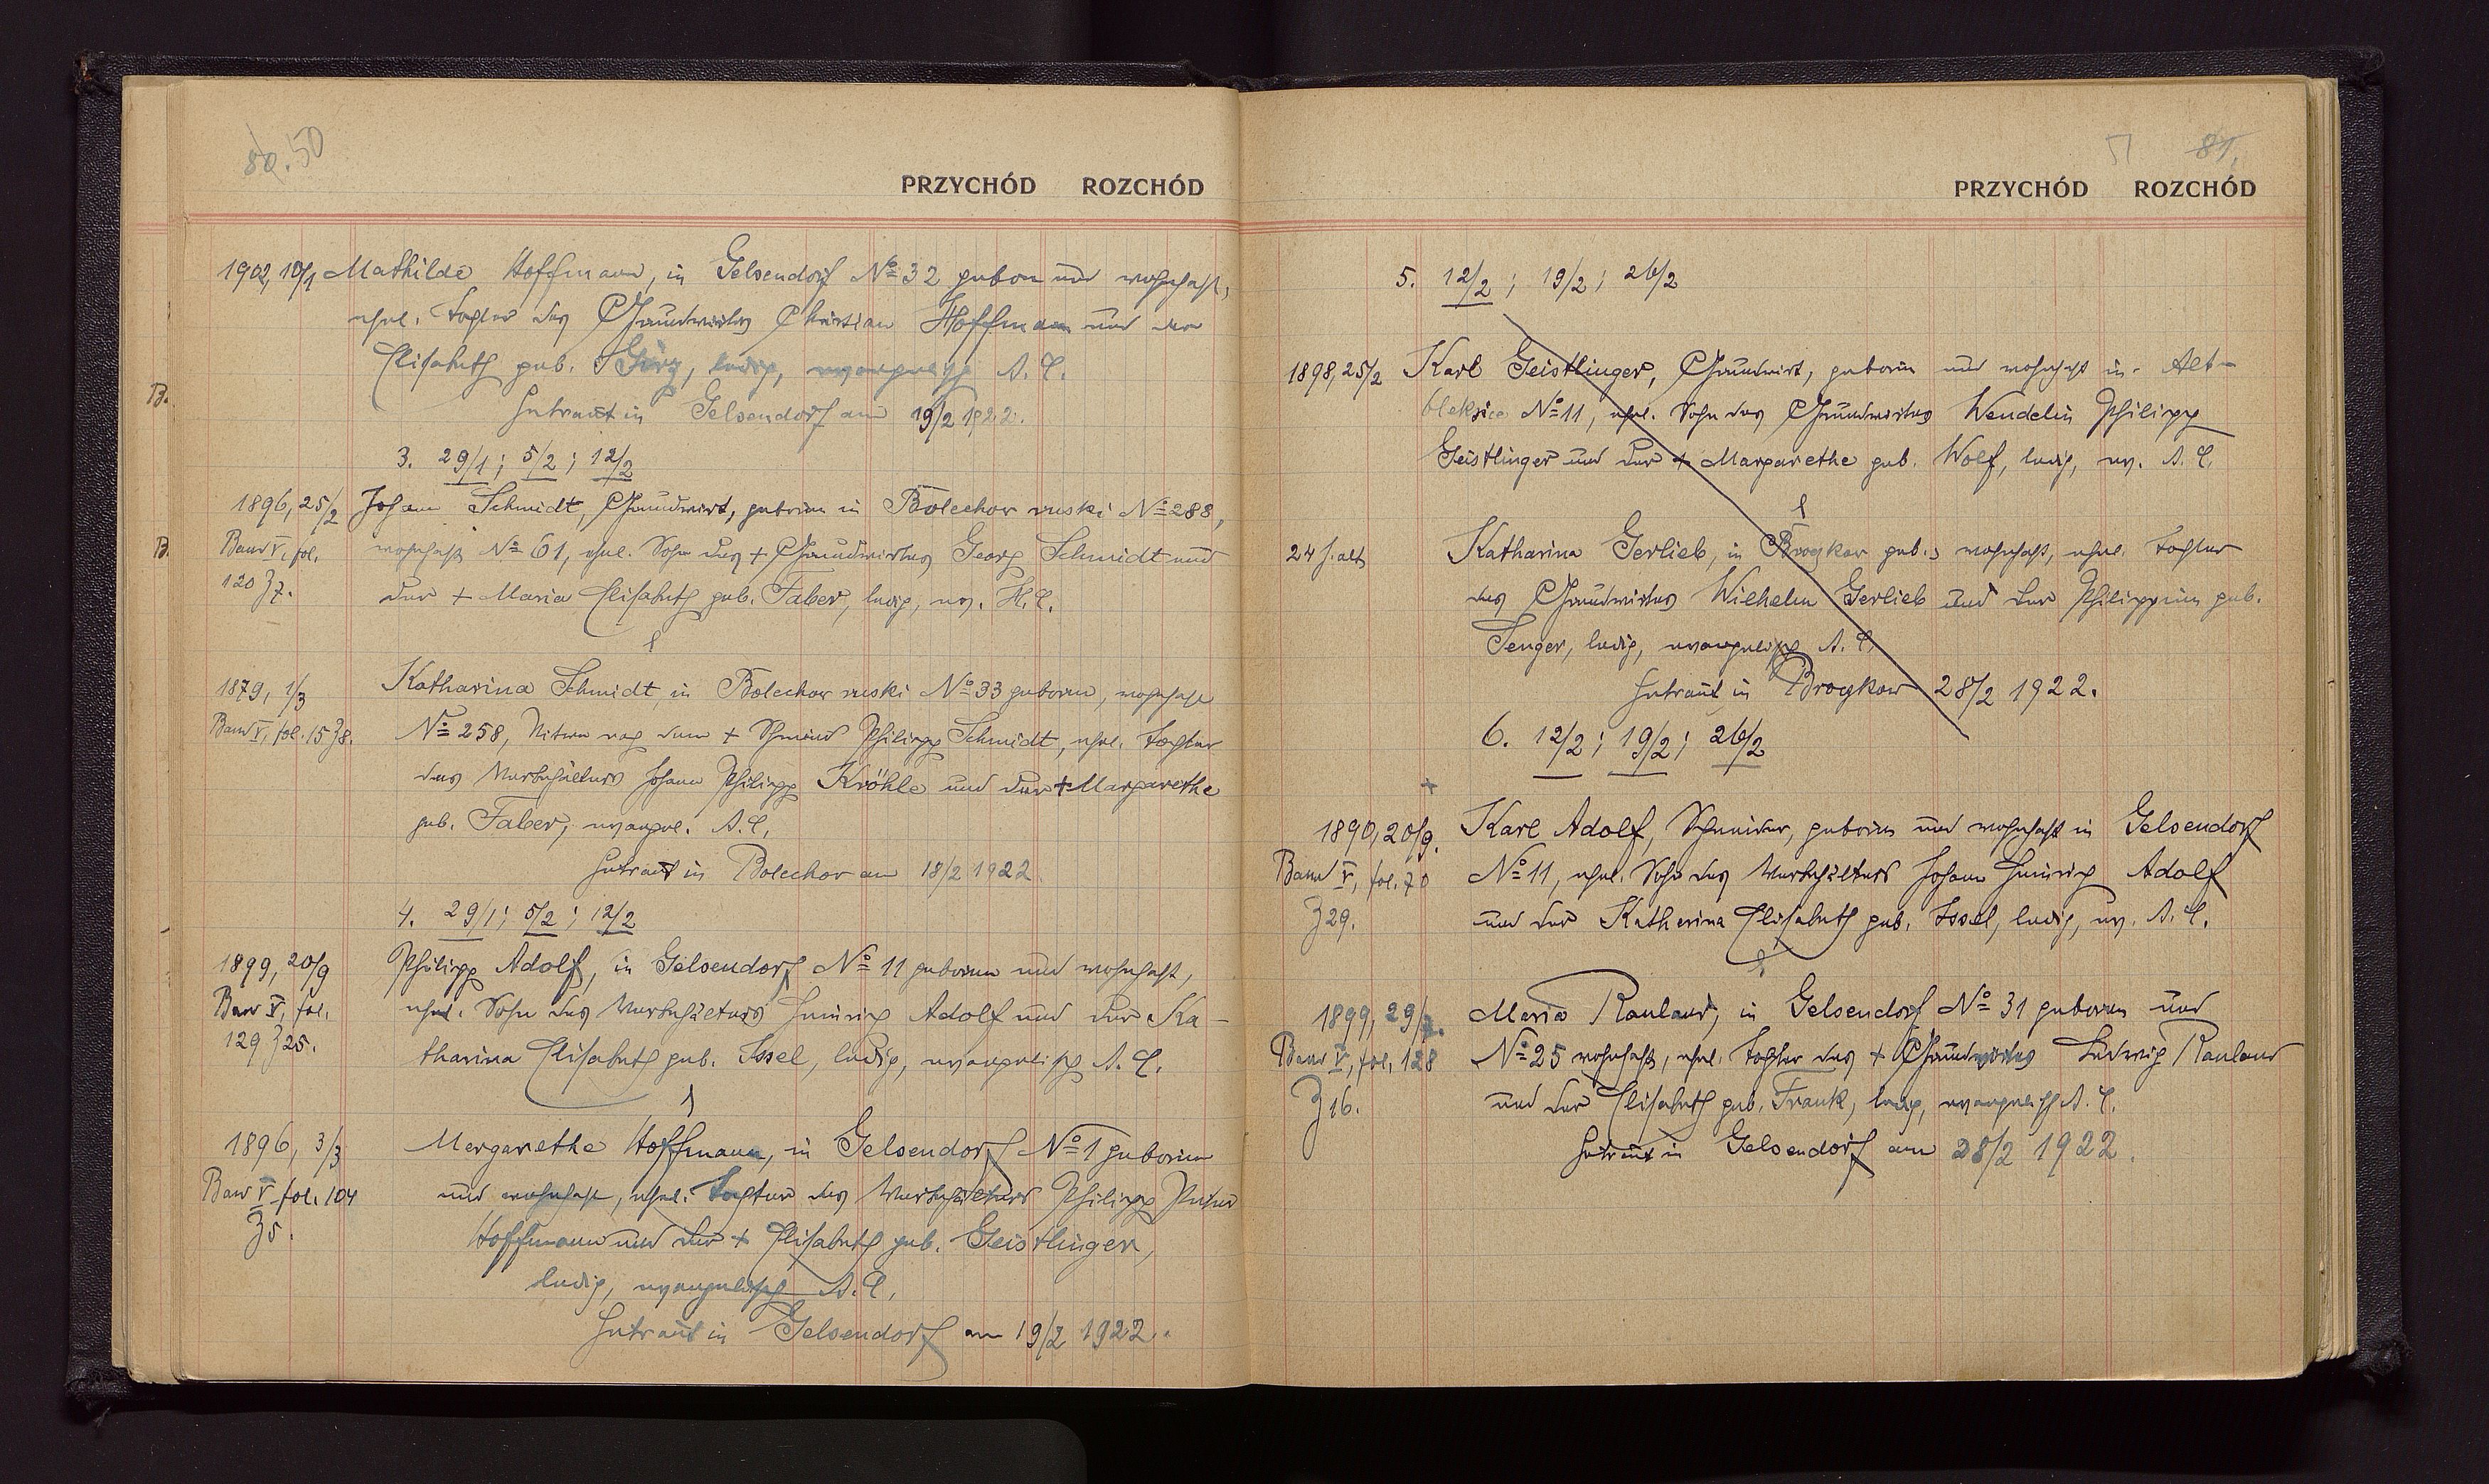 80. 50
PRZYCHÓD ROZCHÓD
1902, 10/1 Mathilde Hoffmann, in Gelsendorf No 32 geboren und wohnhaft,
ehel. Tochter des Grundwirtes Christian Hoffmann und der
Elisabeth geb. Görz, ledig, evangelisch A. C.
Getraut in Gelsendorf am 19/2 1922.
3. 29/1; 5/2; 12/2
1896, 25/2 Johann Schmidt, Grundwirt, geboren in Bolechow ruski No 288,
Band V, fol. wohnhaft No 61, ehel. Sohn des + Grundwirtes Georg Schmidt und
120 Z 7. der + Maria Elisabeth geb. Faber, ledig, ev. H. C.
1879, 1/3 Katharina Schmidt, in Bolechow ruski No 33 geboren, wohnhaft
Band V, fol. 15 Z 8. No 258, Witwe nach dem + Schmied Philipp Schmidt, ehel. Tochter
des Wirtschafters Johann Philipp Kröhle und der + Margarethe
geb. Faber, evangel. A. C.
Getraut in Bolechow am 18/2 1922.
4. 29/1; 5/2; 12/2
1899, 20/9 Philipp Adolf, in Gelsendorf No 11 geboren und wohnhaft,
Band V, fol. ehel. Sohn des Heinrich Adolf und der Ka-
129 Z 25. tharina Elisabeth geb. Issel, ledig, evangelisch A. C.
1896, 3/3 Margarethe Hoffmann, in Gelsendorf No 1 geboren
Band V fol. 104 und wohnhaft, ehel. Tochter des Philipp Peter
Z 5. Hoffmann und der + Elisabeth geb. Geistlinger,
ledig, evangelisch A. C.
Getraut in Gelsendorf am 19/2 1922.
51 81.
PRZYCHÓD ROZCHÓD
5. 12/2; 19/2; 26/2
1898, 25/2 Karl Geistlinger, Grundwirt, geboren und wohnhaft in Alt-
Oleksice No 11, ehel. Sohn des Grundwirtes Wendelin Philipp
Geistlinger und der + Margarethe geb. Wolf, ledig, ev. A. C.
24 J. alt Katharina Gerlieb, in geb. wohnhaft, ehel. Tochter
des Grundwirtes Wilhelm Gerlieb und der Philippine geb.
Senger, ledig, evangelisch A. C.
Getraut in 28/2 1922.
6. 12/2; 19/2; 26/2
1890, 20/9. Karl Adolf, Schneider, geboren und wohnhaft in Gelsendorf
Band V, fol. 70 No 11, ehel. Sohn des Johann Heinrich Adolf
Z 29. und der Katharina Elisabeth geb. Issel, ledig, ev. A. C.
1899, 29/ Maria Rauland, in Gelsendorf No 31 geboren und
Band V, fol. 128 No 25 wohnhaft, ehel. Tochter des + Grundwirtes Ludwig Rauland
Z 16. und der Elisabeth geb. Frank, ledig, evangelisch A. C.
Getraut in Gelsendorf am 28/2 1922.